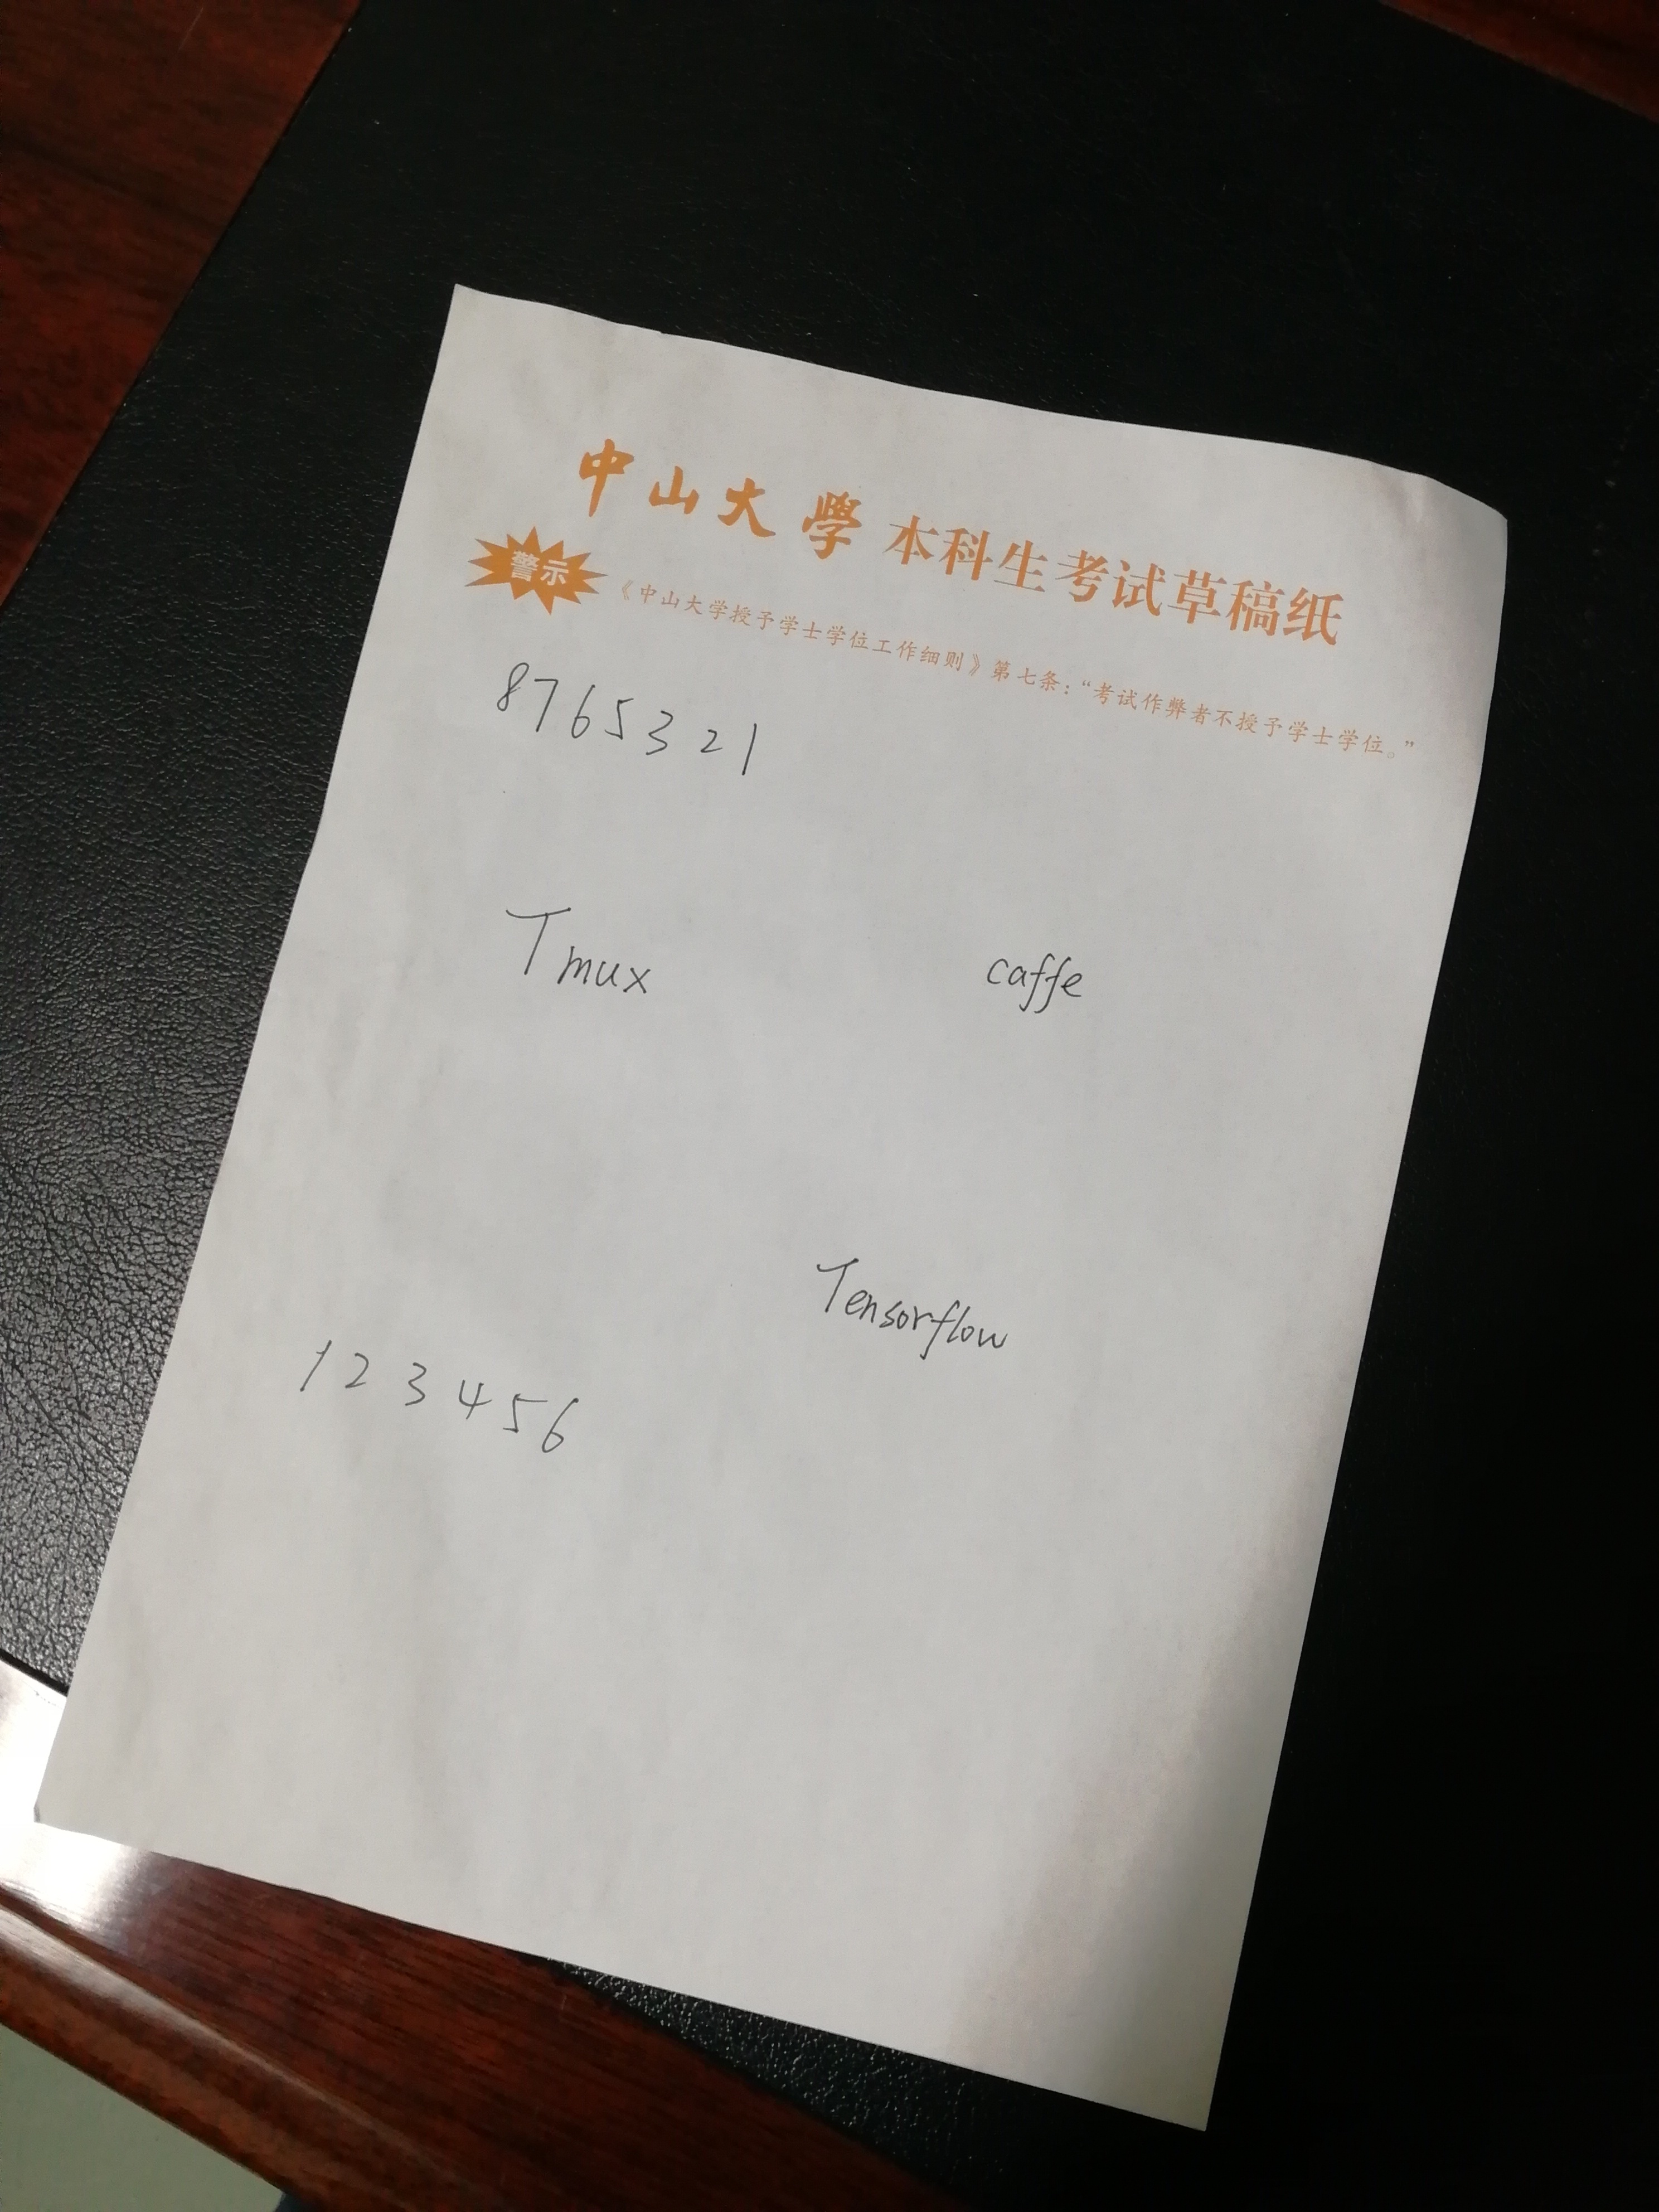 中山大學 本科生考试草稿纸
警示 《中山大学授予学士学位工作细则》第七条：“考试作弊者不授予学士学位。”
8765321
Tmux caffe
Tensorflow
123456